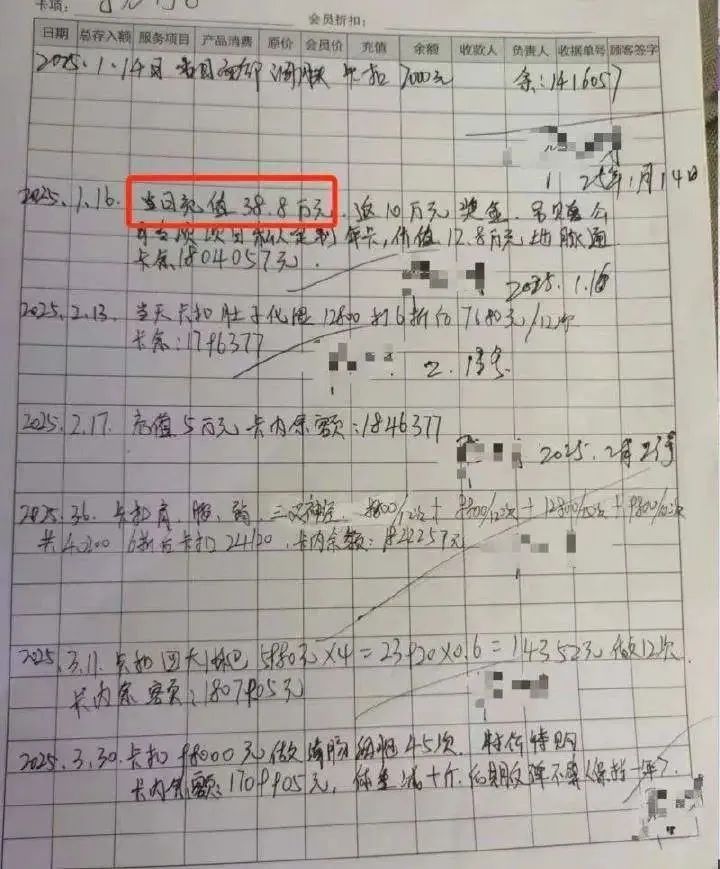 卡项：
会员折扣：
日期 总存入额 服务项目 产品消费 原价 会员价 充值 余额 收款人 负责人 收据单号 顾客签字
2025.1.14日 卡扣 7000元 余：1416057
25年1月14日
2025.1.16. 当日充值 38.8万元. 返10万元奖金.
年卡，价值12.8万元
卡余1804057元.
2025.1.16
2025.2.13. 当天卡扣 12800打6折后7680元/12次
卡余：1796377
2.13号
2025.2.17. 充值5万元 卡内余额：1846377
2025.2月
2025.3.6. 卡扣肩、腰、三叉神经 9800/12次+12800/10次+9800/10次
共40200 6折后卡扣24120.卡内余额：1822257元
2025.3.11.卡扣四大 5980元×4=23920×0.6=14352元 做12次.
卡内余额：1807905元
2025.3.30.卡扣98000元做 45次. 特价特购
卡内余额：1709905元，体重减十斤.